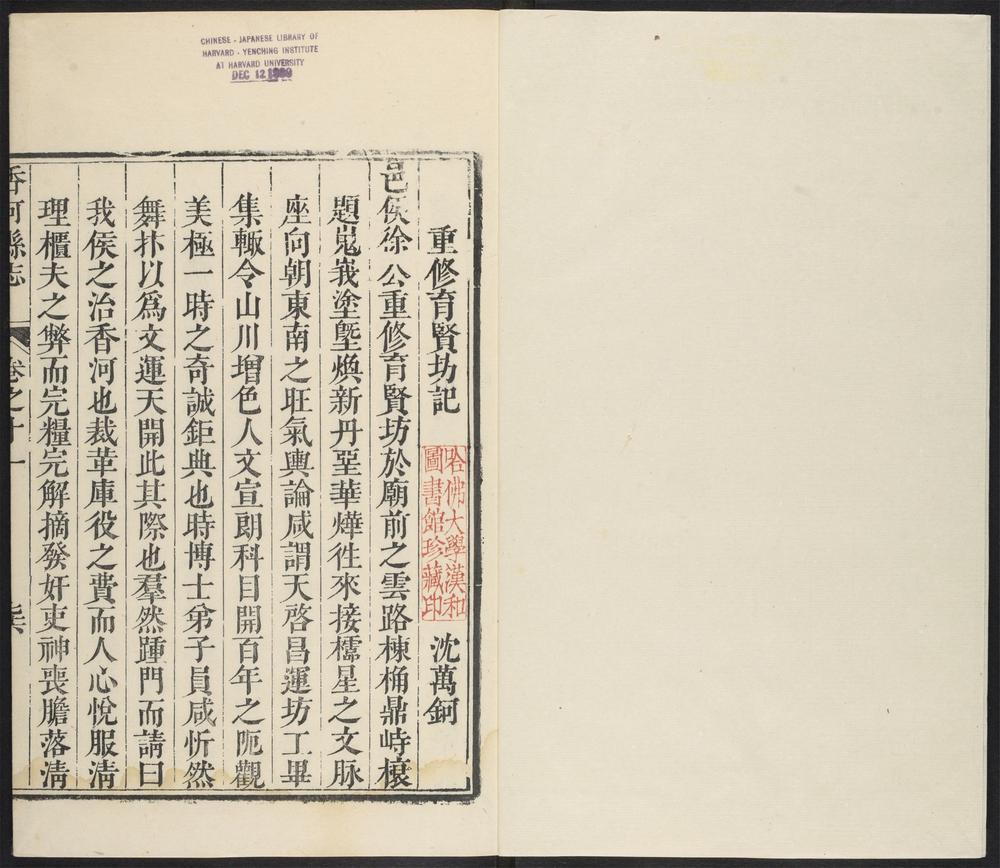 CHINESE - JAPANESE LIBRARY OF
HARVARD - YENCHING INSTITUTE
AT HARVARD UNIVERSITY
DEC 12 1939
重修育賢坊記 沈萬鈳
哈佛大學漢和
圖書館珍藏印
邑侯徐公重修育賢坊於廟前之雲路棟桷鼎峙榱
題嵬峩塗塈煥新丹堊華燁徃來接櫺星之文脉
座向朝東南之旺氣輿論咸謂天啓昌運坊工畢
集輙令山川增色人文宣朗科目開百年之阨觀
美極一時之奇誠鉅典也時博士弟子員咸忻然
舞抃以爲文運天開此其際也羣然踵門而請曰
我侯之治香河也裁革庫役之費而人心悅服淸
理櫃夫之弊而完糧完解摘發奸吏神喪膽落淸
香河縣志 卷之十一